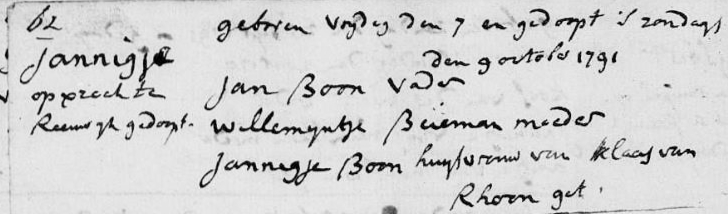 62
Jannigje
opgrechte
Reeuwyk gedoopt.
geboren vrydag den 7 en gedoopt 's zondags
den 9 october 1791
Jan Boon vader
Willemyntje Beieman moeder
Jannigje Boon huysvrouw van Klaas van
Rhoon get.